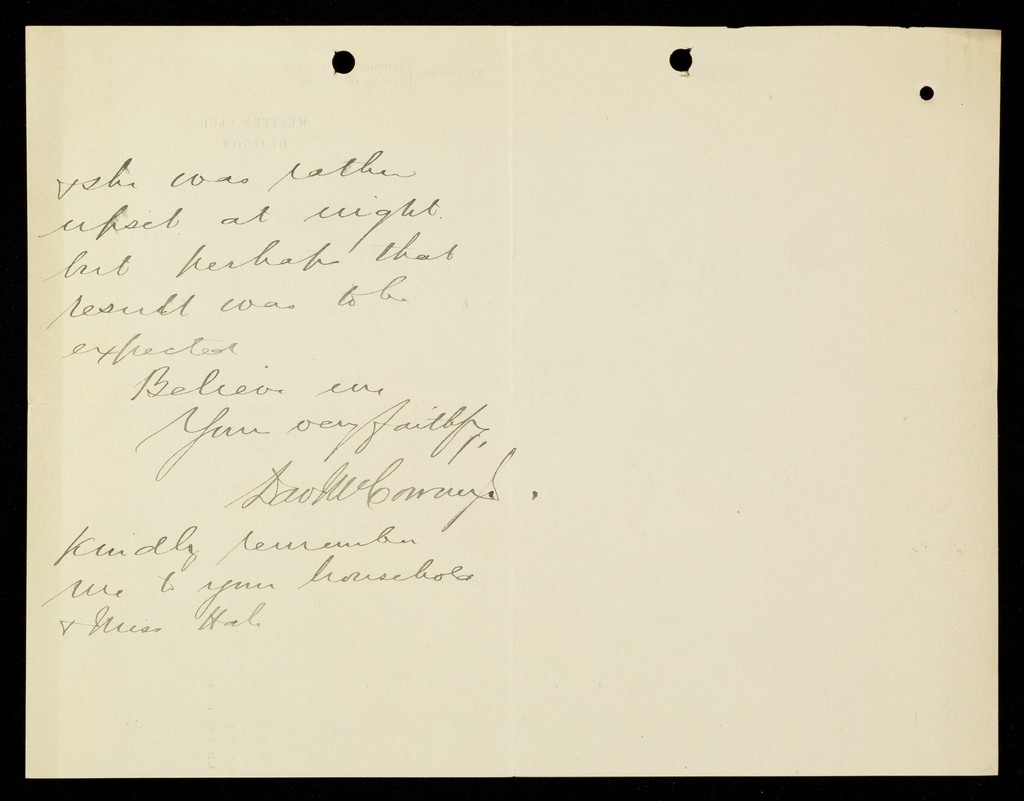 & she was rather
upset at night
but perhaps that
result was to be
expected
Believe me
Yours very faithfy,
Kindly remember
me to your household
& Miss Hale